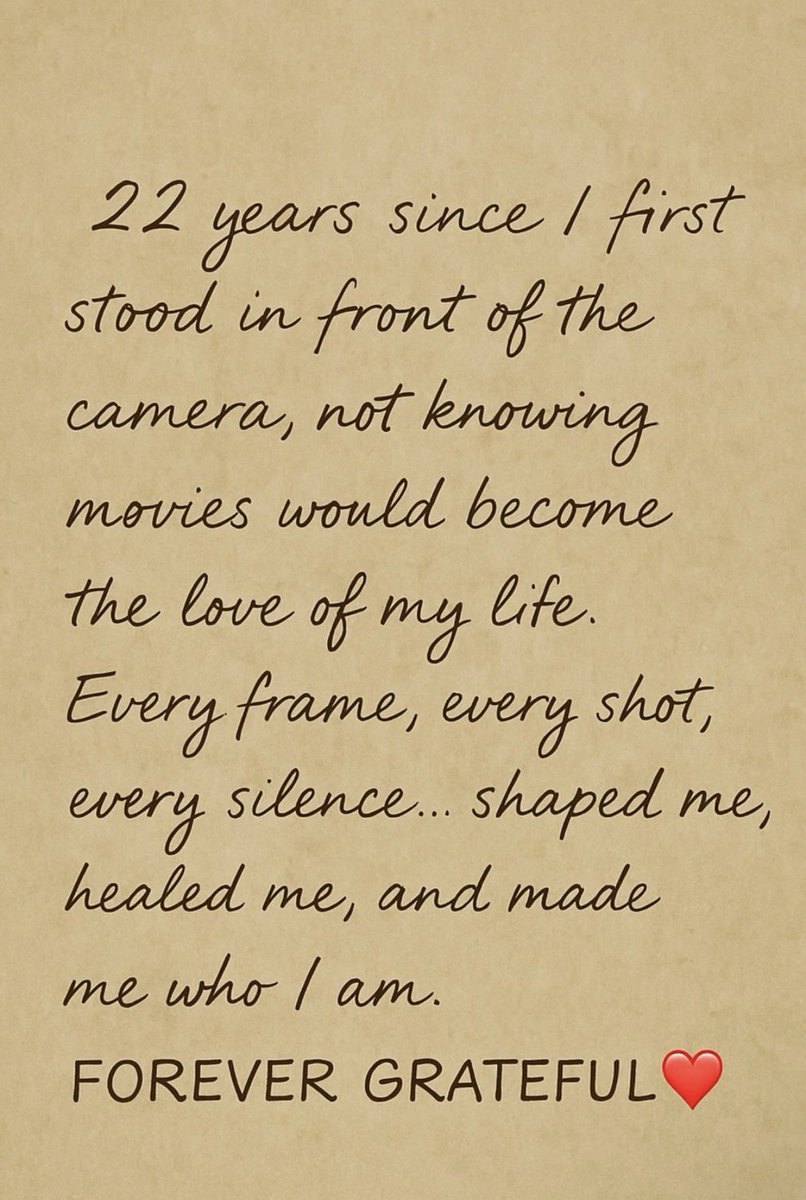 22 years since I first
stood in front of the
camera, not knowing
movies would become
the love of my life.
Every frame, every shot,
every silence... shaped me,
healed me, and made
me who I am.
FOREVER GRATEFUL❤️